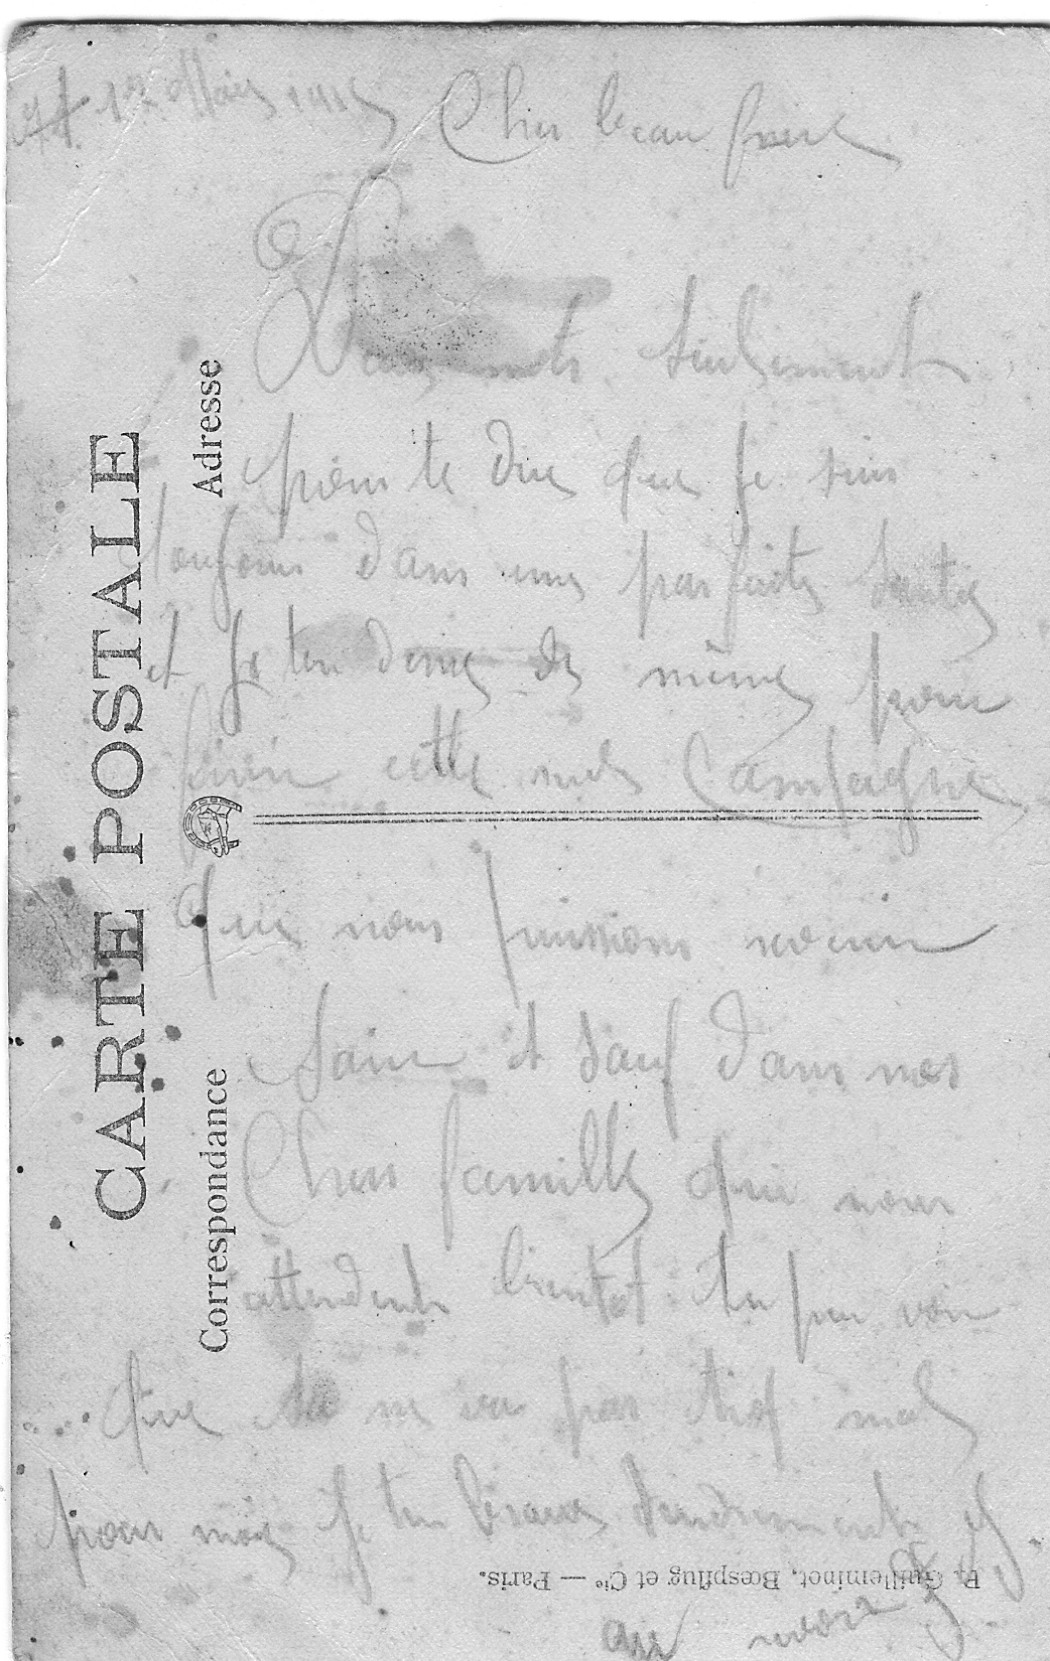 Cher beau frere
2 mots seulement
pour te dire que je suis
toujours dans une parfaite santé
et je ten desire de même pour
finir cette Campagne
que nous puissions revenir
Sain et sauf dans nos
Cher famille qui nous
attendent bientot tu peu voir
que sa ne va pas trop mal
pour moi je ten tendrement
au revoir
CARTE POSTALE
Correspondance
Adresse
P. Guilleminot, Bœspflug et Cie — Paris.